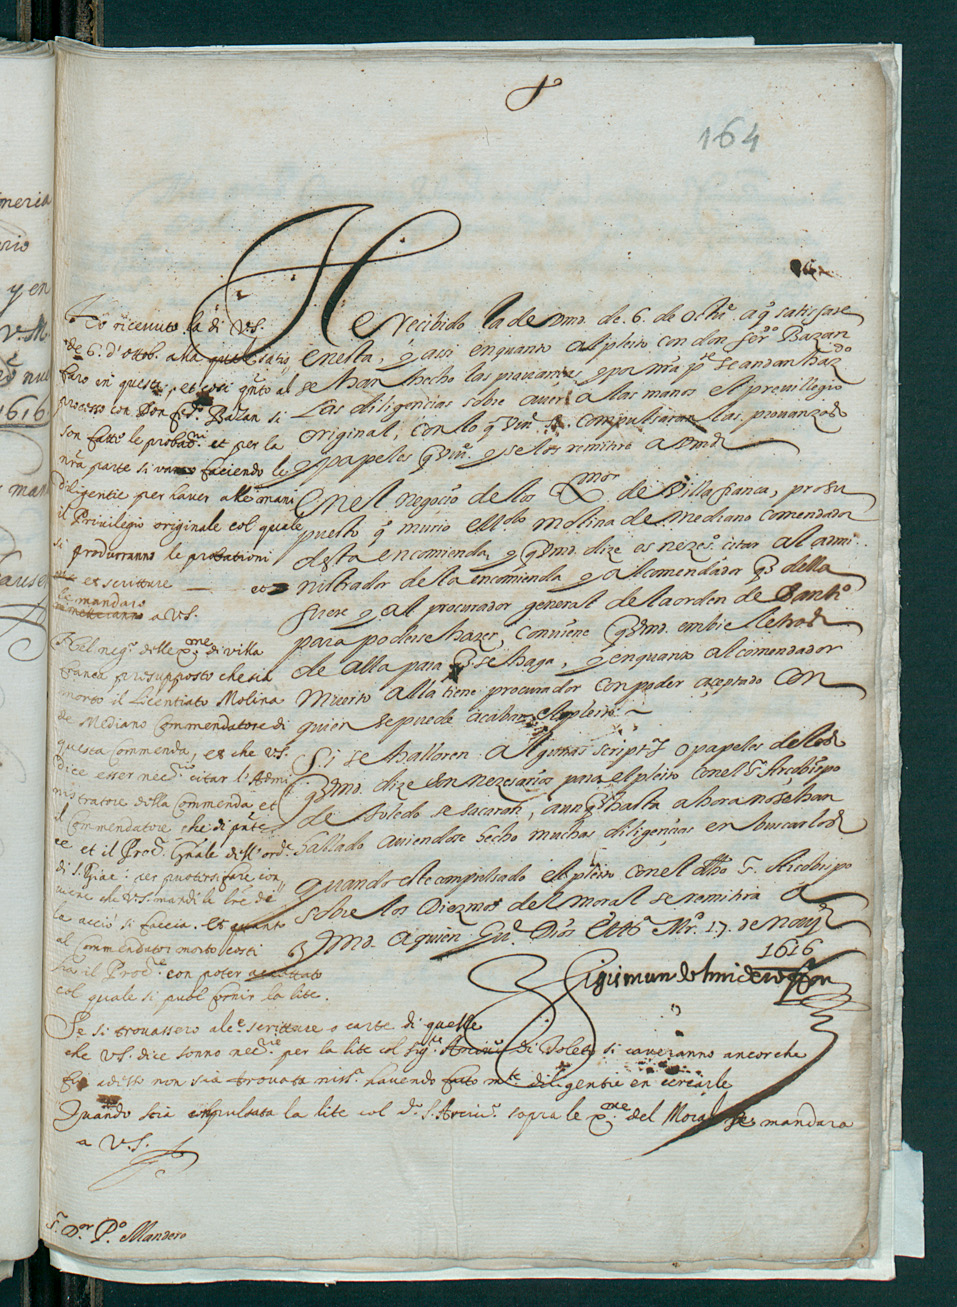 164
He recibido la de Vmd. de 6. de otu.e a q satisfare
en esta, y assi en quanto al pleito con don fer.do Bazan
se han hecho las provanzas, y por nra p.te se andan haz.do
Las diligencias sobre aver a las manos el previlegio
original, con lo q
compulsaran las provanzas
y papeles
y se los remitire a Vmd
En el negocio de los Xmos de Villa franca, presu
puesto q murio el l.do Molina de Mediano comendador
desta encomienda, y q Vmd. dize es nezes.o citar al admi
nistrador de la encomienda y al comendador q della
fuere y al procurador general de la orden de Santi.o
para poderse hazer, conviene q Vmd. embie letras
de alla para q se haga, y en quanto al comendador
muerto alla tiene procurador con poder azeptado con
quien se puede acabar el pleito.
Si se hallaren algunas script.s o papeles de los
q Vmd. dize son nezesarios para el pleito con el S.r Arcobispo
de Toledo se sacaran, aunq hasta ahora no se han
hallado aviendose hecho muchas diligencias en buscarlos
quando este compulsado el pleito con el dho S.r Arcobispo
sobre los Diezmos del Moral se remitira a
Vmd. a quien G.de Dios
M.d 17. de Nov.e
1616
Ho ricevuto la di VS.
de 6. d'ottob. alla quale satis
faro in questa, et cosi q.nto al
processo con Don Fer.do Bazan si
son fatte le probat.ni et per la
nra parte si vanno facendo le
diligentie per haver alle mani
il Privilegio originale col quale
si produrranno le probationi
et scritture et
se mandar.o
a VS.
Nel neg.o delle Xme di villa
franca, presupposto che sia
morto il Licentiato Molina
de Mediano Commendatore di
questa Commenda, et che VS.
dice esser nec.rio citar l'Admi
nistratore della Commenda et
il Commendatore che di p.nte
et il Proc.r G.nale dell'ord.e
di S. Giac.o per potersi fare con
viene che VS. mandi le lre di
la acciò si faccia. Et quanto
al Commendator morto costi
ha il Proc.re con poter accettato
col quale si puol fornir la lite.
Se si trovassero alc.e scritture o carte di quelle
che VS. dice sonno nec.rie per la lite col Sig.r Arciv.o di Toledo si caveranno ancorche
fin adesso non sia trovata niss.a havendo fatto m.te diligentie en cercarle
Quando sia compulsata la lite col d.o S. Arciv.o sopra le Xme del Moral se mandara
a V.S.
S.r D.or P.o Mandero